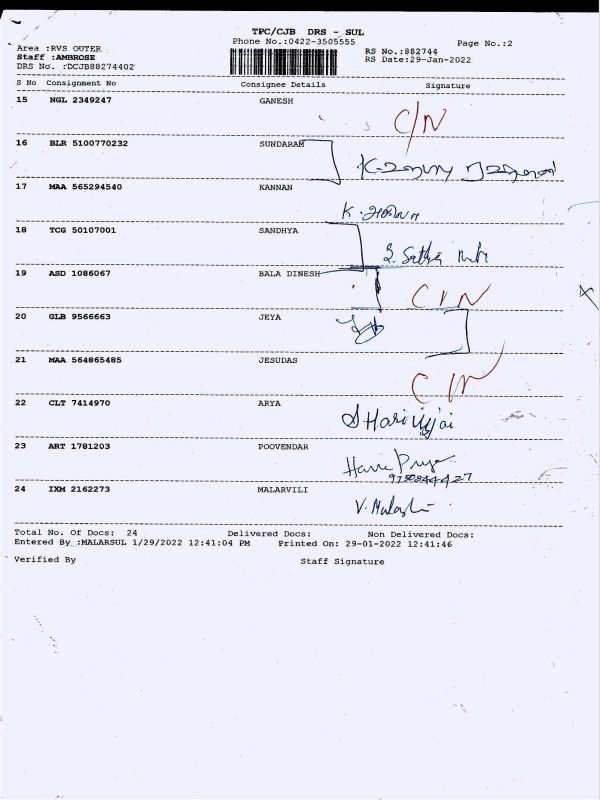 TPC/CJB DRS - SUL
Phone No.:0422-3505555
Page No.:2
Area :RVS OUTER
RS No.:882744
Staff :AMBROSE
RS Date:29-Jan-2022
DRS No. :DCJB88274402
S No Consignment No Consignee Details Signature
15 NGL 2349247 GANESH
C/N
16 BLR 5100770232 SUNDARAM
17 MAA 565294540 KANNAN
18 TCG 50107001 SANDHYA
19 ASD 1086067 BALA DINESH
C/N
20 GLB 9566663 JEYA
21 MAA 564865485 JESUDAS
C/N
22 CLT 7414970 ARYA
23 ART 1781203 POOVENDAR
Hari Priya
24 IXM 2162273 MALARVILI
Total No. Of Docs: 24 Delivered Docs: Non Delivered Docs:
Entered By :MALARSUL 1/29/2022 12:41:04 PM Printed On: 29-01-2022 12:41:46
Verified By Staff Signature